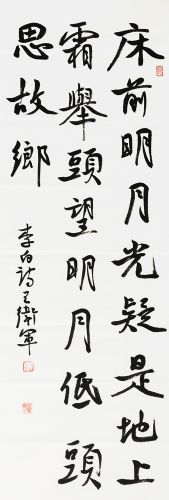 床前明月光疑是地上
霜舉頭望明月低頭
思故鄉
李白詩王衛軍